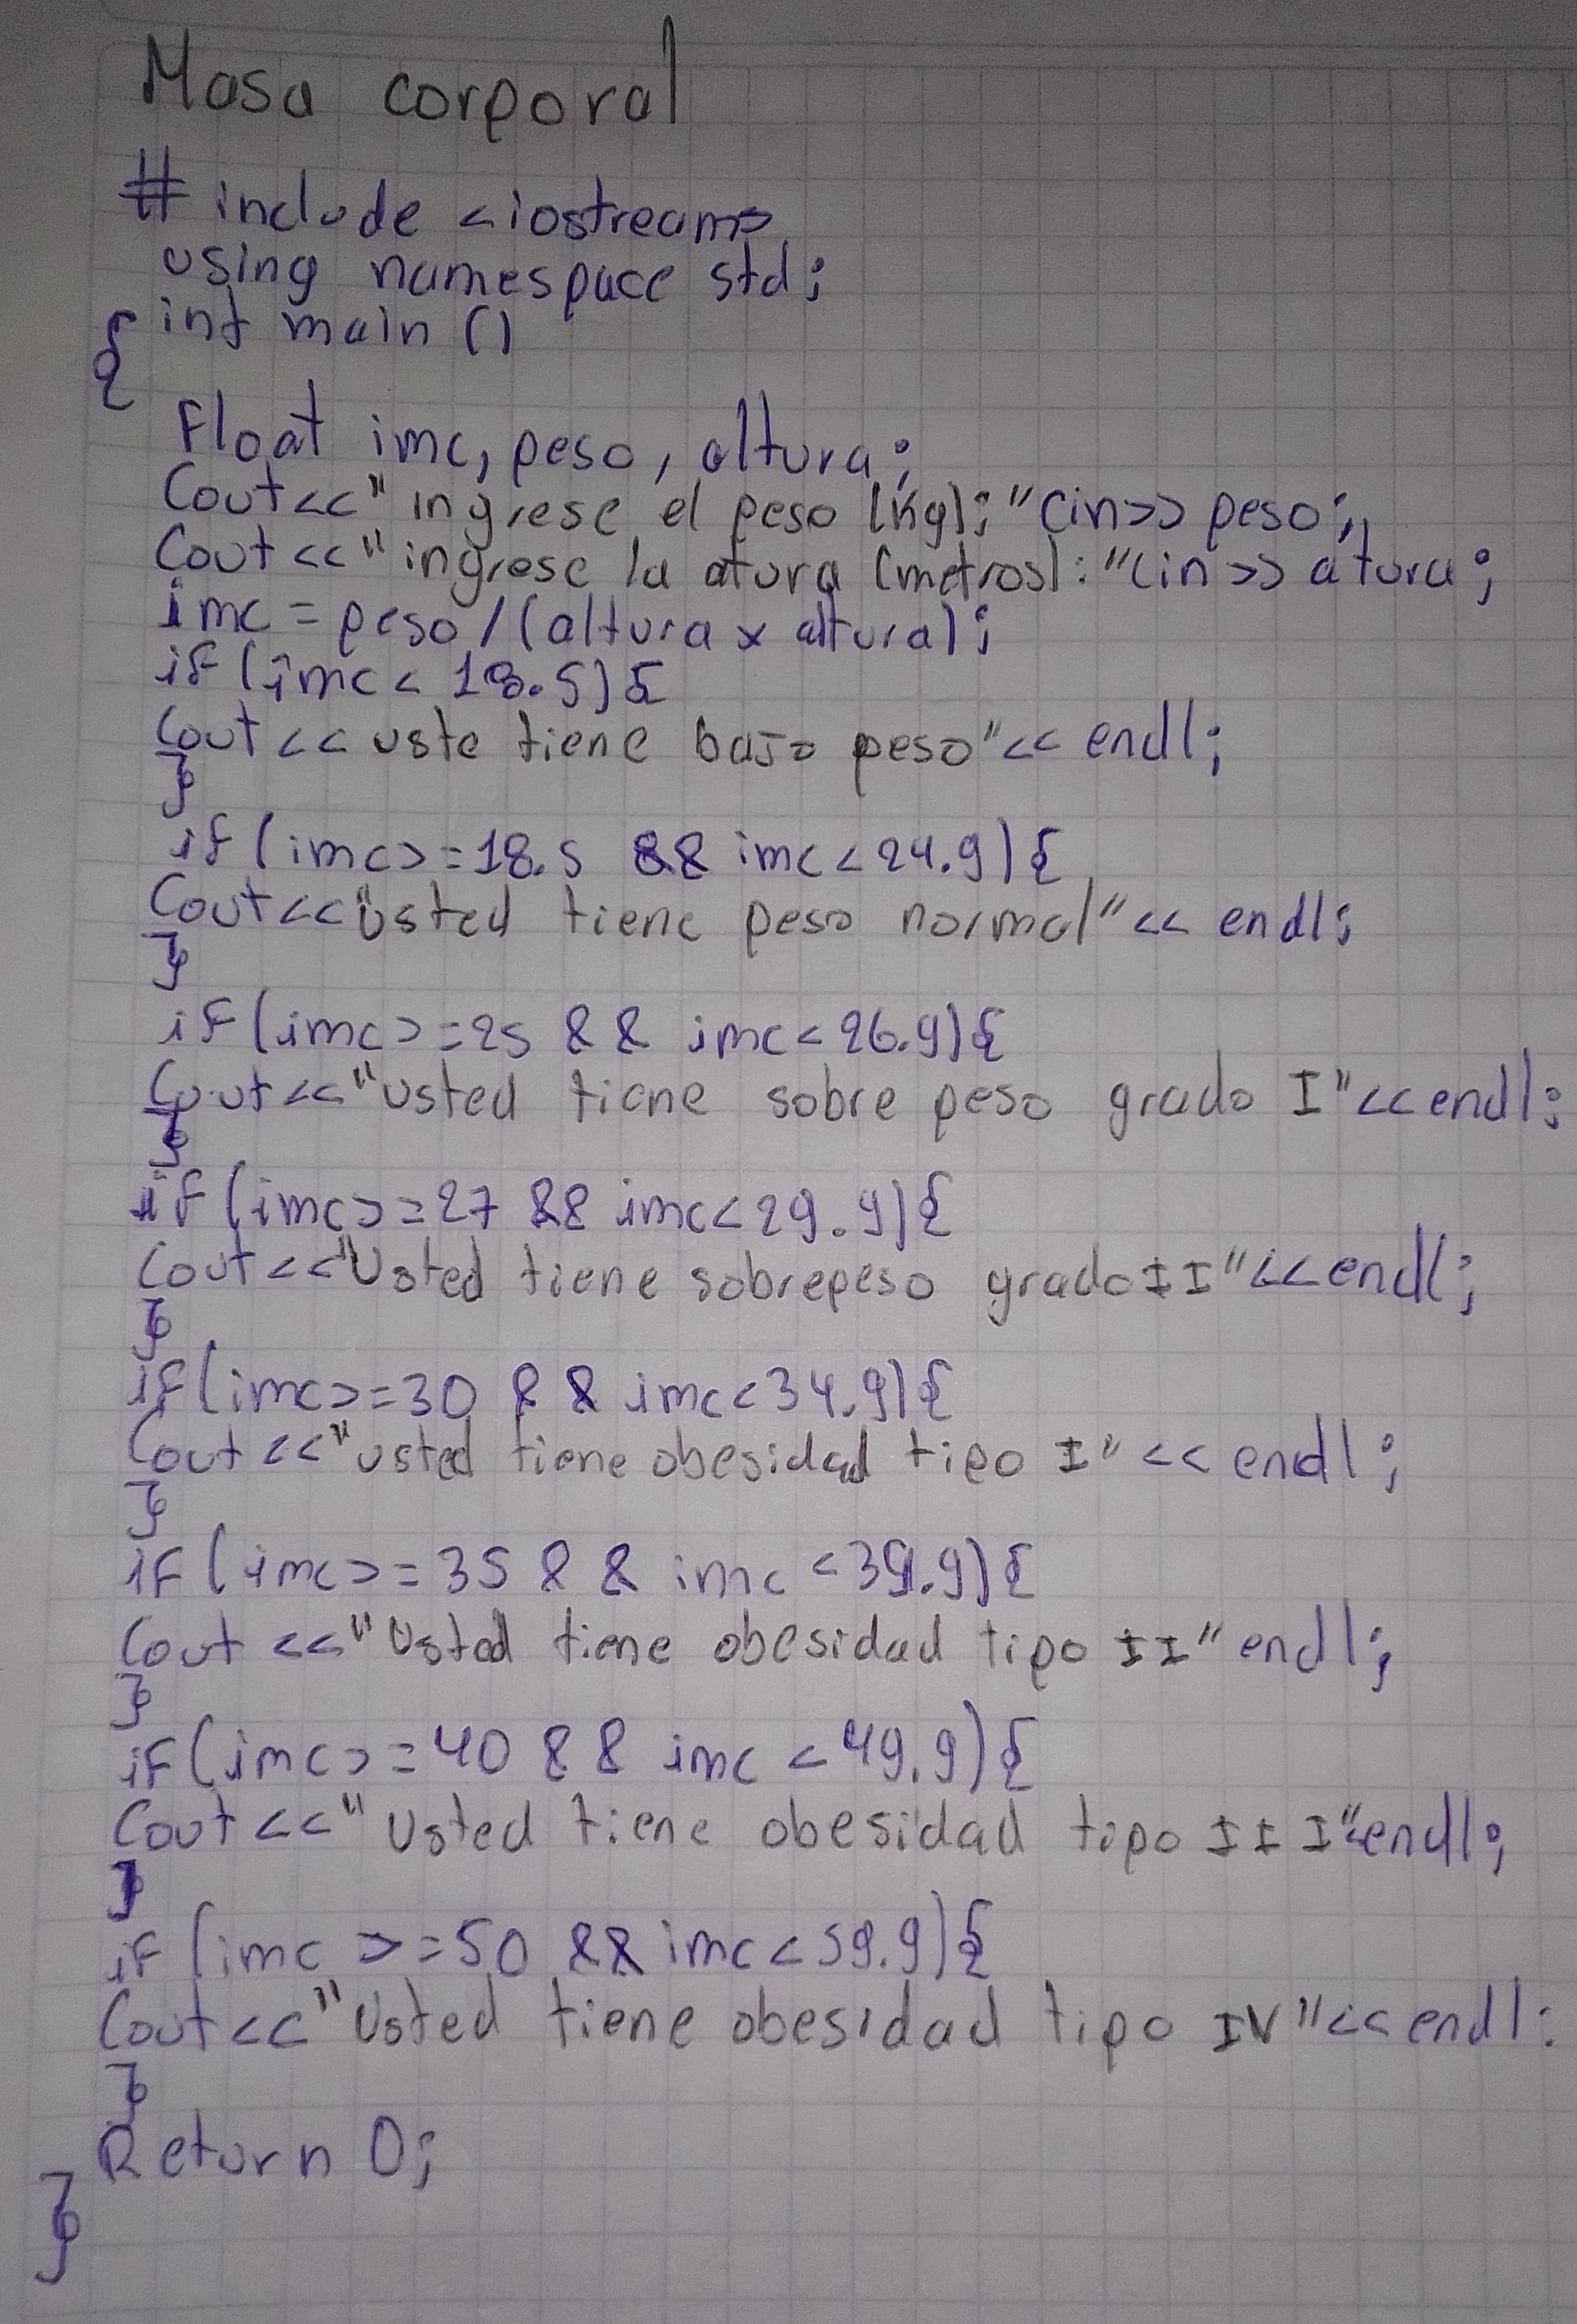 Masa corporal
# include <iostream>
using namespace std;
int main ()
{
Float imc, peso, altura;
Cout<<" ingrese el peso (Kg): "Cin>> peso;
Cout<<" ingrese la atura (metros): "Cin>> atura;
imc = peso / (altura x altura);
if (imc < 18.5) {
Cout << uste tiene bajo peso"<< endl;
}
if (imc>=18.5 && imc<24.9) {
Cout<<"usted tiene peso normal"<< endl;
}
if (imc>=25 && imc<26.9) {
Cout<<"usted tiene sobre peso grado I"<<endl;
}
if (imc>=27 && imc<29.9) {
Cout<<"Usted tiene sobrepeso grado II"<<endl;
}
if (imc>=30 && imc<34.9) {
Cout <<"usted tiene obesidad tipo I" << endl;
}
if (imc>=35 && imc <39.9) {
Cout <<"Usted tiene obesidad tipo II" endl;
}
if (imc>=40 && imc <49.9) {
Cout <<" Usted tiene obesidad tipo III"<endl;
}
if (imc >=50 && imc<59.9) {
Cout<<"Usted tiene obesidad tipo IV"<< endl:
}
Return 0;
}